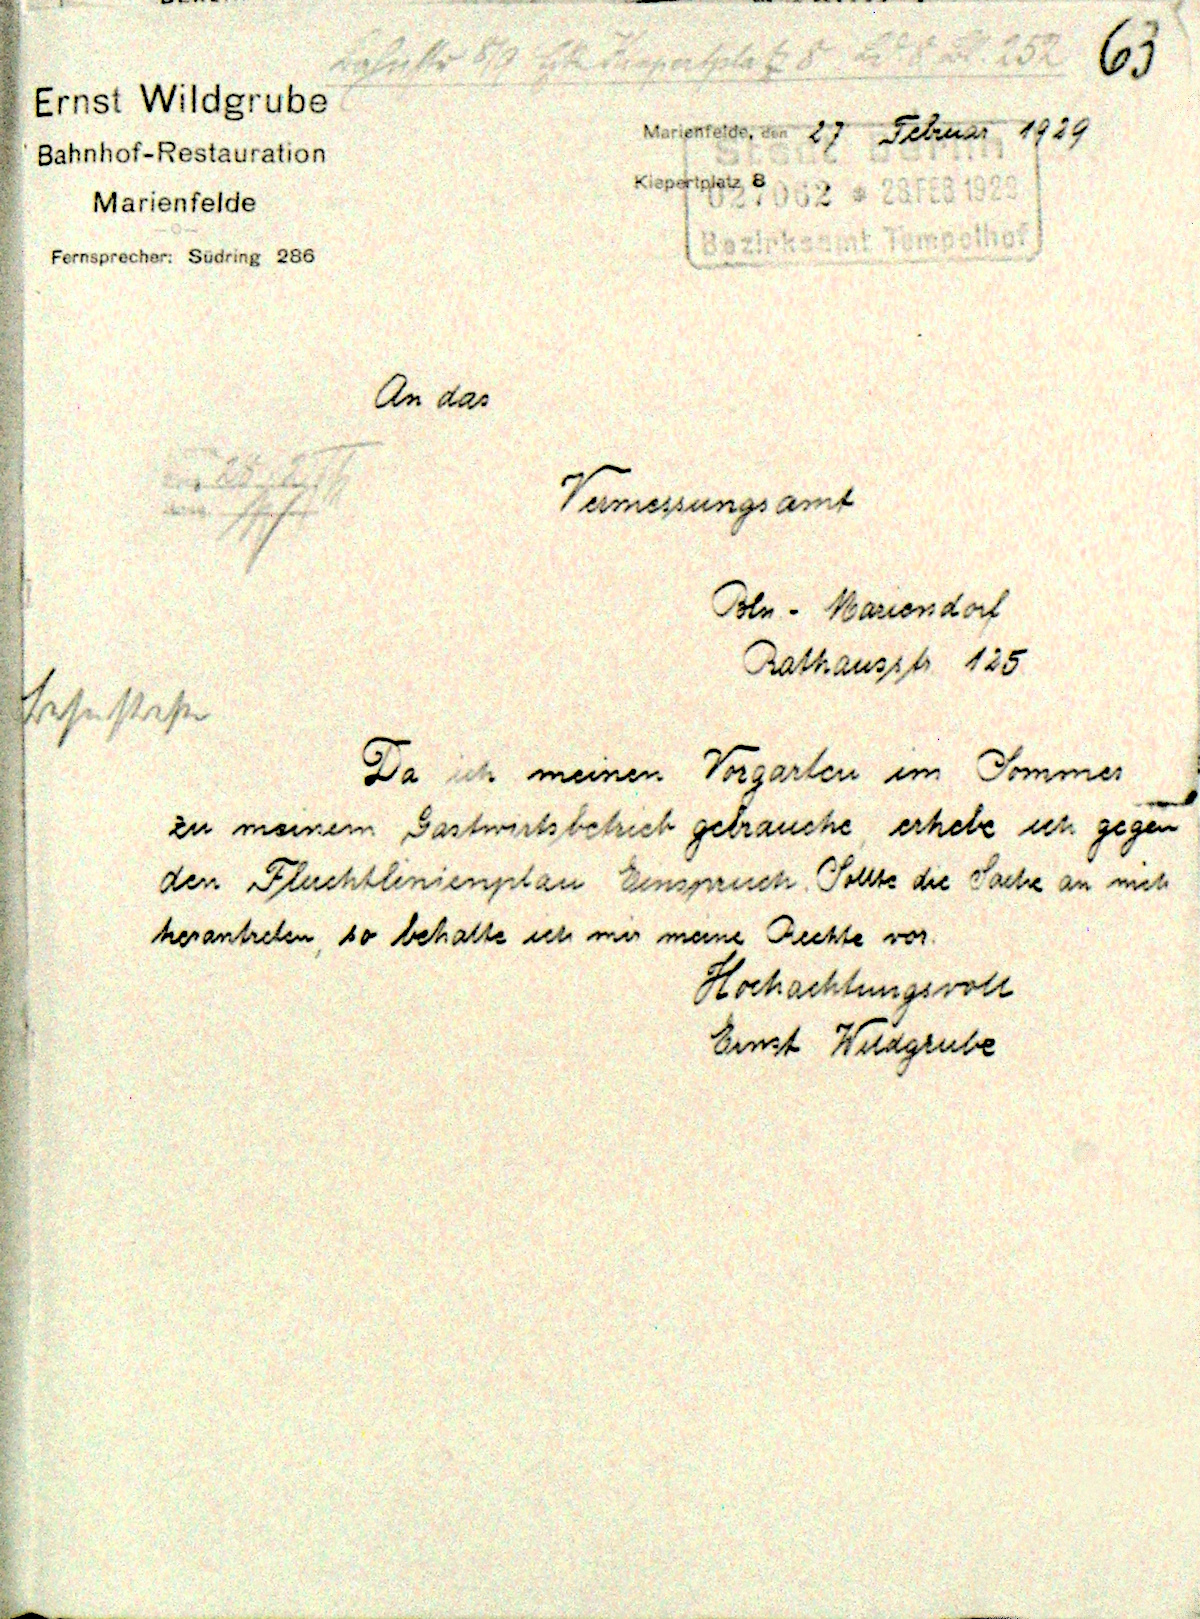 63
Ernst Wildgrube
Bahnhof-Restauration
Marienfelde
Fernsprecher: Südring 286
Marienfelde, den 27 Februar 1929
Kiepertplatz 8
Stadt Berlin
027062 * 28.FEB 1929
Bezirksamt Tempelhof
An das
Vermessungsamt
Bln - Mariendorf
Rathausstr 125
Da ich meinen Vorgarten im Sommer
zu meinem Gastwirtsbetrieb gebrauche, erhebe ich gegen
den Fluchtlinienplan Einspruch. Sollte die Sache an mich
herantreten, so behalte ich mir meine Rechte vor.
Hochachtungsvoll
Ernst Wildgrube